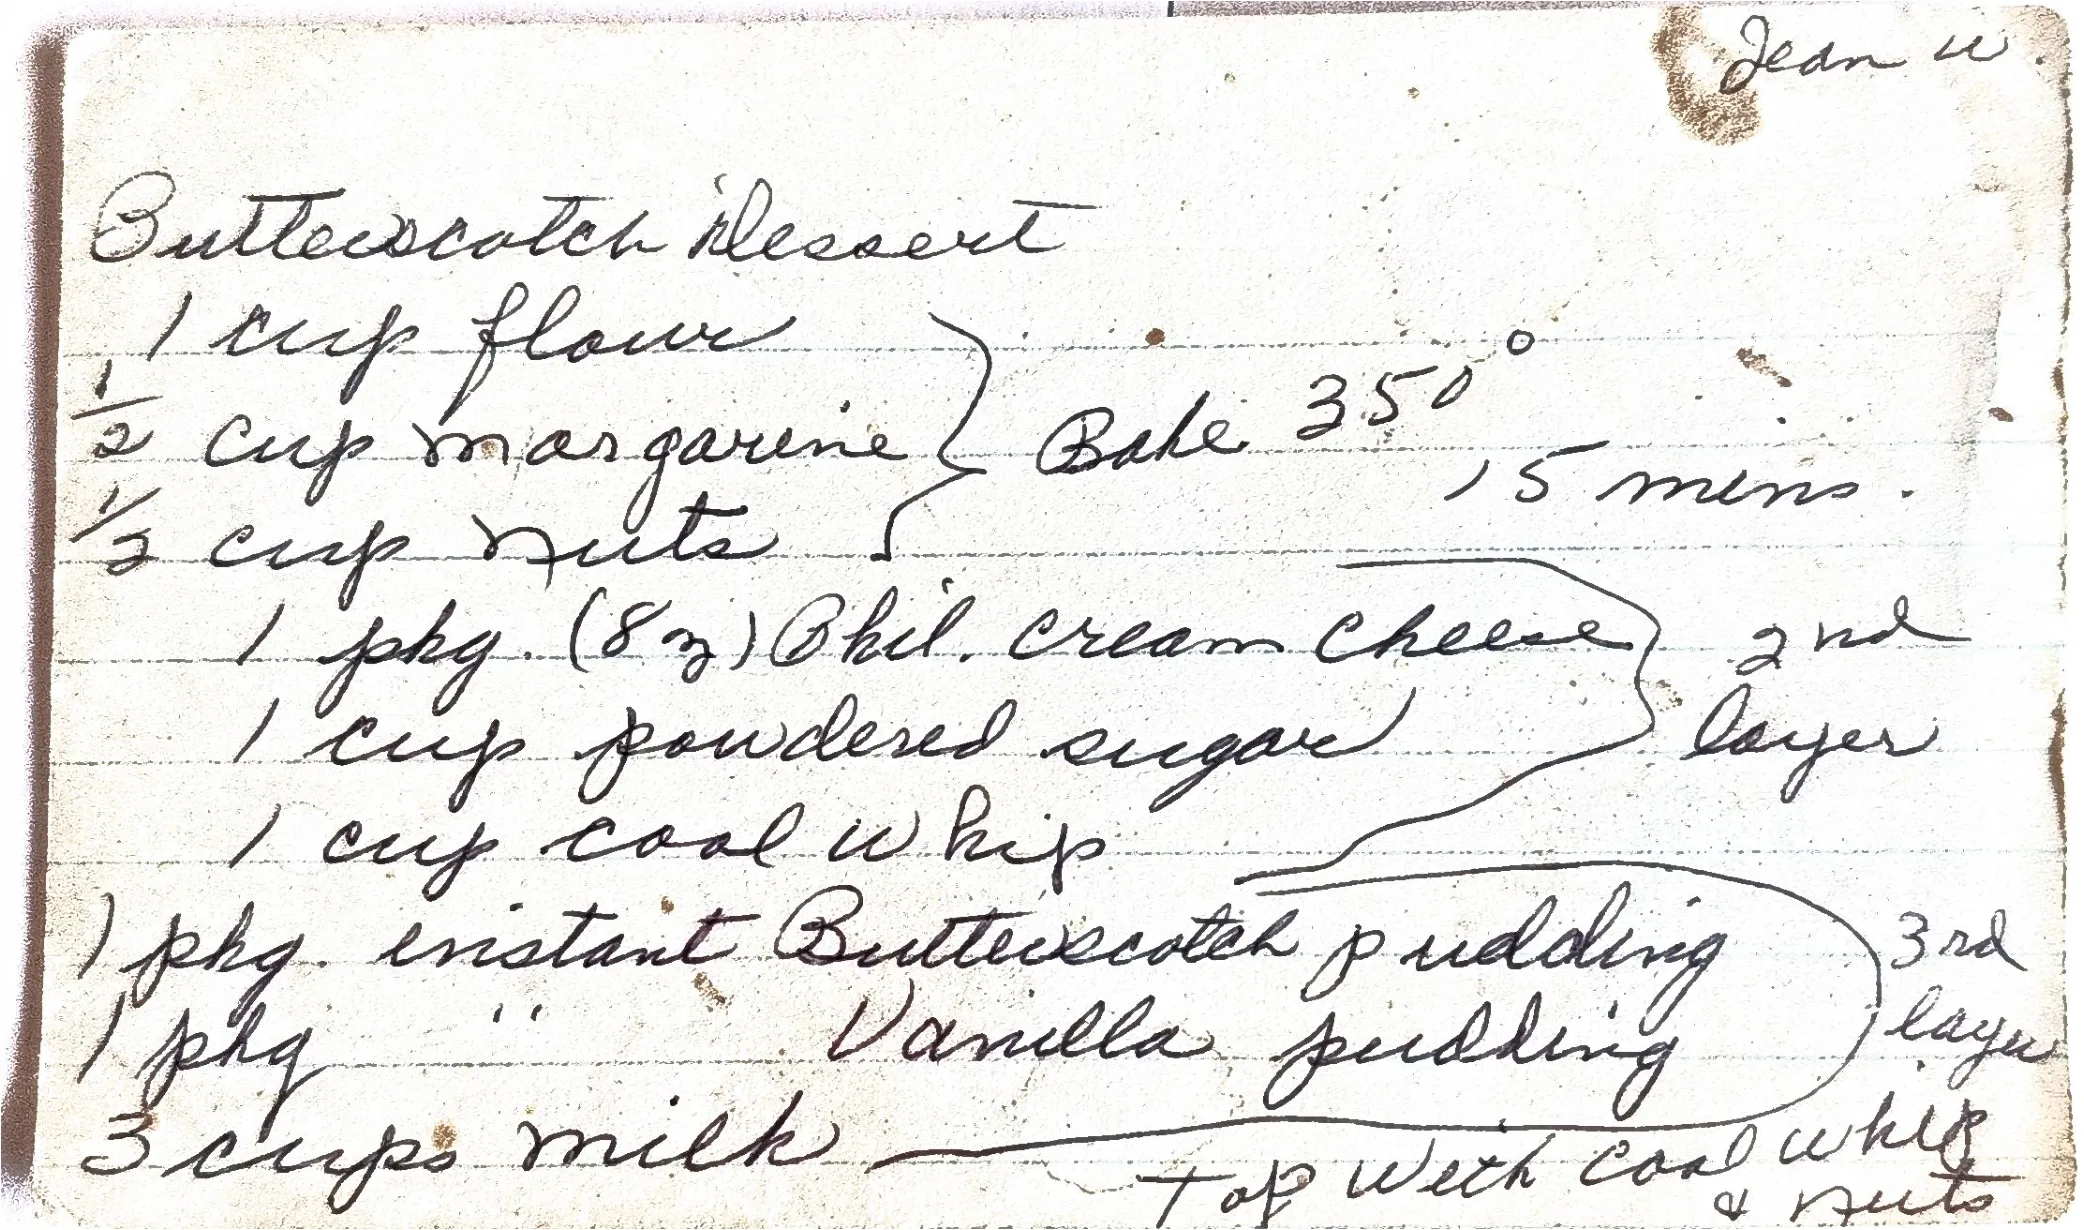 Jean W.
Butterscotch Dessert
1 cup flour
1/2 cup margarine } Bake 350°
15 mins.
1/2 cup nuts
1 pkg. (8 oz) Phil. cream cheese } 2nd
1 cup powdered sugar layer
1 cup cool whip
1 pkg. instant Butterscotch pudding } 3rd
1 pkg " Vanilla pudding layer
3 cups milk
Top with cool whip
& nuts